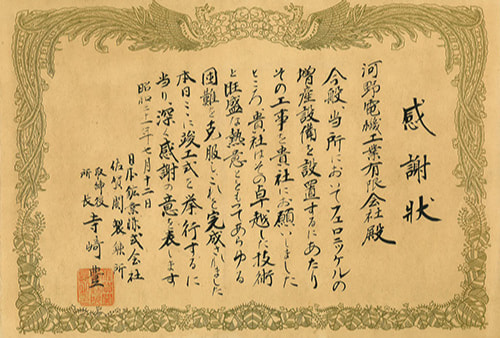 感謝状
河野電機工業有限会社殿
今般当所においてフェロニッケルの
増産設備を設置するにあたり
その工事を貴社にお願いしました
ところ貴社はその卓越した技術
と旺盛な熱意とをもってあらゆる
困難を克服しこれを完成されました
本日ここに竣工式を挙行するに
当り深く感謝の意を表します
昭和三十二年七月十二日
日本鉱業株式会社
佐賀関製錬所
取締役
所長 寺崎 豊